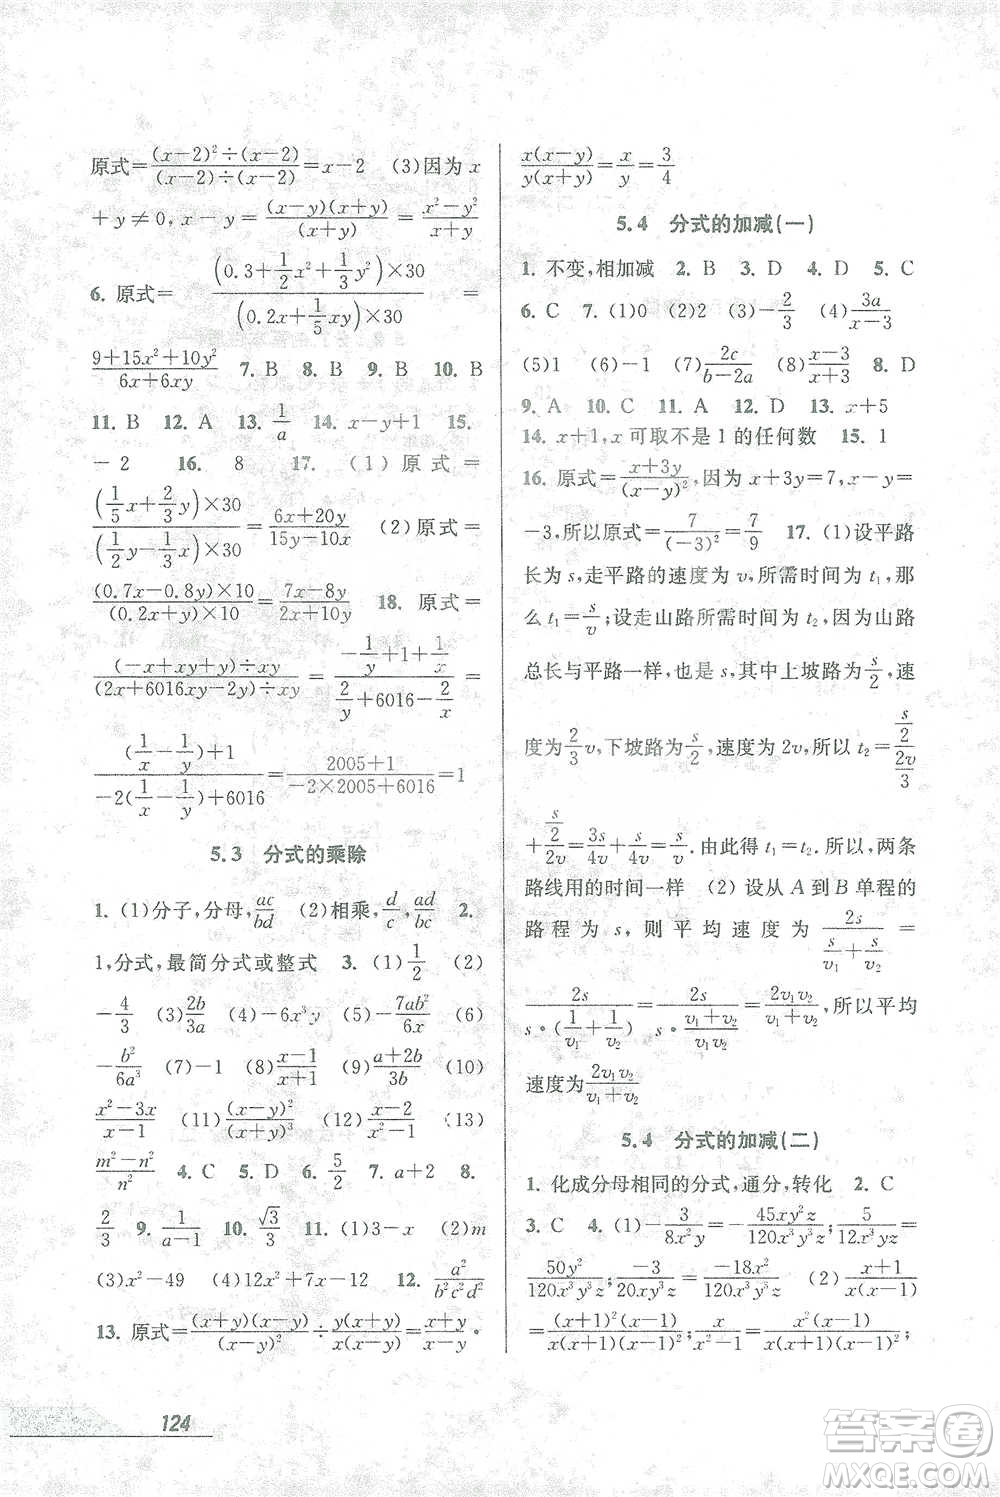 原式=\frac{(x-2)²÷(x-2)}{(x-2)÷(x-2)}=x-2　(3)因为 x
+y≠0,x-y=\frac{(x-y)(x+y)}{(x+y)}=\frac{x²-y²}{x+y}
6. 原式=\frac{(0.3+\frac{1}{2}x²+\frac{1}{3}y²)×30}{(0.2x+\frac{1}{5}xy)×30}=
\frac{9+15x²+10y²}{6x+6xy}　7. B　8. B　9. B　10. B
11. B　12. A　13. \frac{1}{a}　14. x-y+1　15.
-2　16. 8　17. (1)原式=
\frac{(\frac{1}{5}x+\frac{2}{3}y)×30}{(\frac{1}{2}y-\frac{1}{3}x)×30}=\frac{6x+20y}{15y-10x}　(2)原式=
\frac{(0.7x-0.8y)×10}{(0.2x+y)×10}=\frac{7x-8y}{2x+10y}　18. 原式=
\frac{(-x+xy+y)÷xy}{(2x+6016xy-2y)÷xy}=\frac{-\frac{1}{y}+1+\frac{1}{x}}{\frac{2}{y}+6016-\frac{2}{x}}=
\frac{(\frac{1}{x}-\frac{1}{y})+1}{-2(\frac{1}{x}-\frac{1}{y})+6016}=\frac{2005+1}{-2×2005+6016}=1
5.3　分式的乘除
1. (1)分子,分母,\frac{ac}{bd}　(2)相乘,\frac{d}{c},\frac{ad}{bc}　2.
1,分式,最简分式或整式　3. (1)\frac{1}{2}　(2)
-\frac{4}{3}　(3)\frac{2b}{3a}　(4)-6x³y　(5)-\frac{7ab²}{6x}　(6)
-\frac{b²}{6a³}　(7)-1　(8)\frac{x-1}{x+1}　(9)\frac{a+2b}{3b}　(10)
\frac{x²-3x}{x-1}　(11)\frac{(x-y)²}{(x+y)³}　(12)\frac{x-2}{x}　(13)
\frac{m²-n²}{n²}　4. C　5. D　6. \frac{5}{2}　7. a+2　8.
\frac{2}{3}　9. \frac{1}{a-1}　10. \frac{√3}{3}　11. (1)3-x　(2)m
(3)x²-49　(4)12x²+x-12　12. \frac{a²}{b²c²d²}
13. 原式=\frac{(x+y)(x-y)}{(x-y)²}÷\frac{y(x+y)}{x(x-y)}=\frac{x+y}{x-y}·
124
\frac{x(x-y)}{y(x+y)}=\frac{x}{y}=\frac{3}{4}
5.4　分式的加减(一)
1. 不变,相加减　2. B　3. D　4. D　5. C
6. C　7. (1)0　(2)2　(3)-\frac{2}{3}　(4)\frac{3a}{x-3}
(5)1　(6)\frac{1}{a}　(7)\frac{2c}{b-2a}　(8)\frac{x-3}{x+3}　8. D
9. A　10. C　11. A　12. D　13. x+5
14. x+1,x 可取不是 1 的任何数　15. 1
16. 原式=\frac{x+3y}{(x-y)²},因为 x+3y=7,x-y=
-3,所以原式=\frac{7}{(-3)²}=\frac{7}{9}　17. (1)设平路
长为 s,走平路的速度为 v,所需时间为 t₁,那
么 t₁=\frac{s}{v};设走山路所需时间为 t₂,因为山路
总长与平路一样,也是 s,其中上坡路为\frac{s}{2},速
度为\frac{2}{3}v,下坡路为\frac{s}{2},速度为 2v,所以 t₂=\frac{\frac{s}{2}}{\frac{2v}{3}}
+\frac{\frac{s}{2}}{2v}=\frac{3s}{4v}+\frac{s}{4v}=\frac{s}{v}.由此得 t₁=t₂.所以,两条
路线用的时间一样　(2)设从 A 到 B 单程的
路程为 s,则平均速度为\frac{2s}{\frac{s}{v₁}+\frac{s}{v₂}}=
\frac{2s}{s·(\frac{1}{v₁}+\frac{1}{v₂})}=\frac{2s}{s·\frac{v₁+v₂}{v₁v₂}}=\frac{2v₁v₂}{v₁+v₂},所以平均
速度为\frac{2v₁v₂}{v₁+v₂}
5.4　分式的加减(二)
1. 化成分母相同的分式,通分,转化　2. C
3. C　4. (1)-\frac{3}{8x²y}=-\frac{45xy²z}{120x³y³z};\frac{5}{12x²yz}=
\frac{50y²}{120x³y³z};\frac{-3}{20xy³z}=\frac{-18x²}{120x³y³z}　(2)\frac{x+1}{x(x-1)}
=\frac{(x+1)²(x-1)}{x(x+1)(x-1)²};\frac{x}{x²-1}=\frac{x²(x-1)}{x(x+1)(x-1)²};
答案圈
MXQE.COM